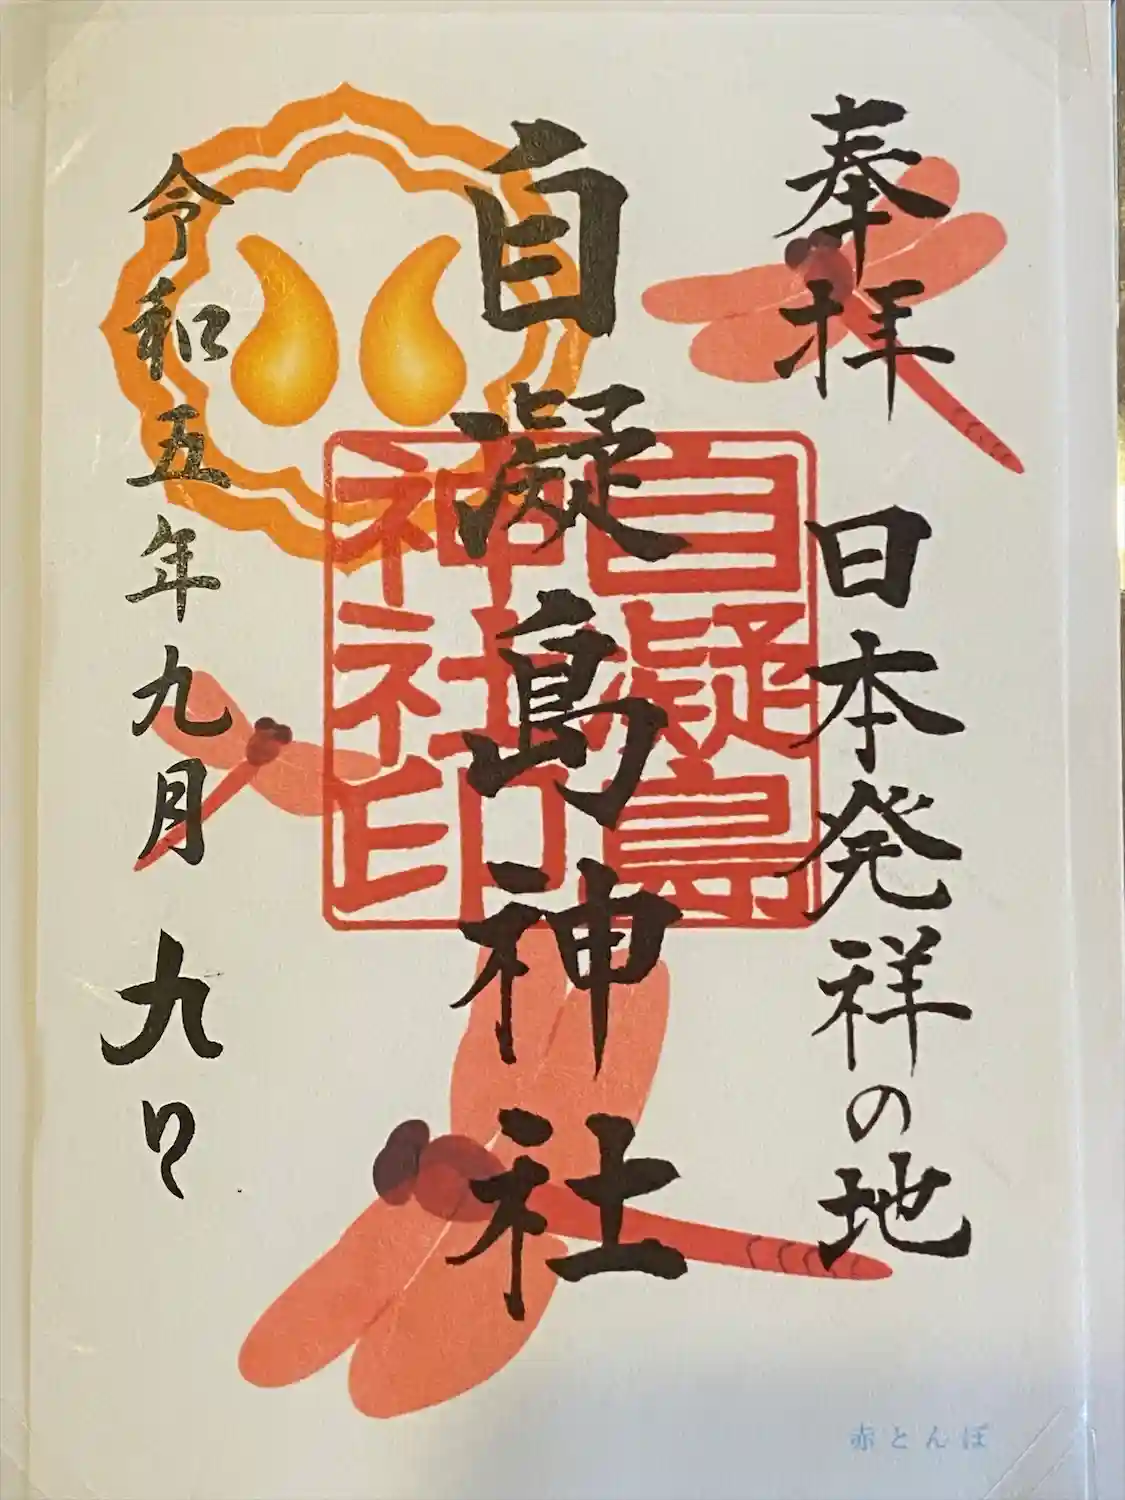 奉拝 日本発祥の地
自凝島神社
自凝島
神社印
令和五年九月九日
赤とんぼ